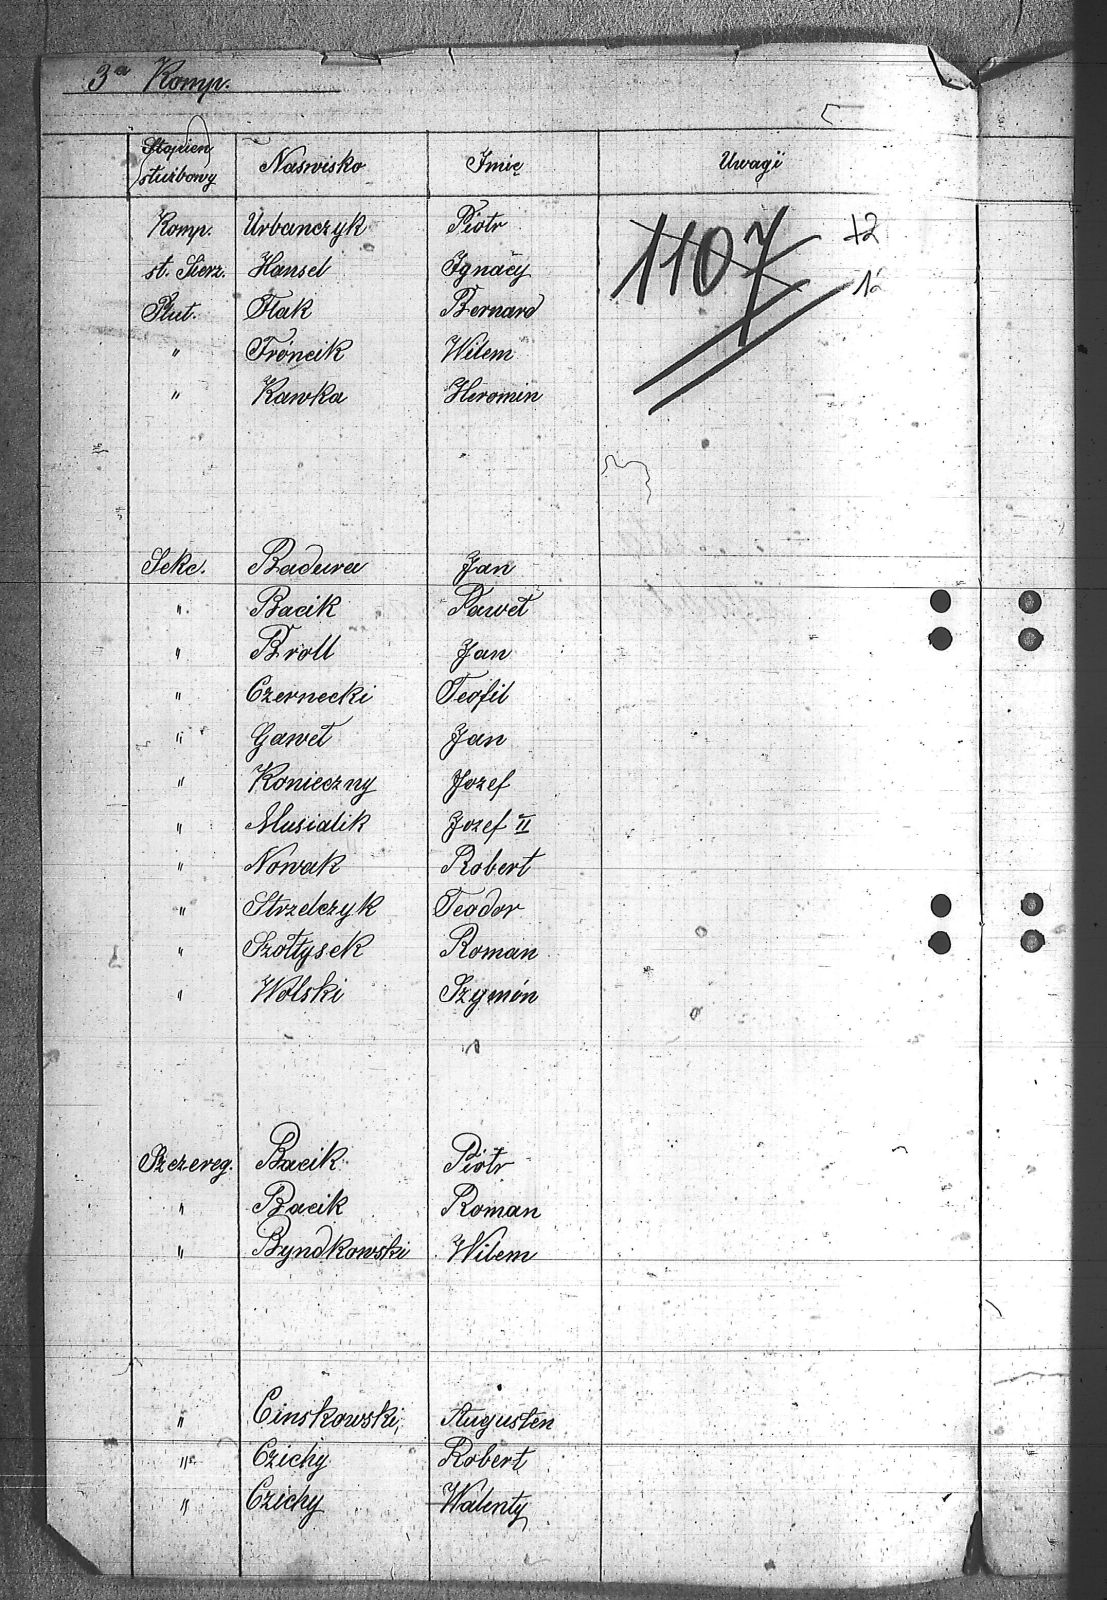 3a Komp.
Stopień służbowy Naswisko Jmię Uwagi
Komp. Urbanczyk Piotr
st. Sierz. Hansel Ignacy
Plut. Flak Bernard
" Fróncik Wilem
" Kawka Heromin
1107
12
Sekc. Badura Jan
" Bacik Paweł
" Broll Jan
" Czernecki Teofil
" Gaweł Jan
" Konieczny Jozef
" Musialik Jozef II
" Nowak Robert
" Strzelczyk Teodor
" Szołtysek Roman
" Wolski Szymón
Szczereg. Bacik Piotr
" Bacik Roman
" Byndkowski Wilem
" Cinskowski, Augusten
" Czichy Robert
" Czichy Walenty